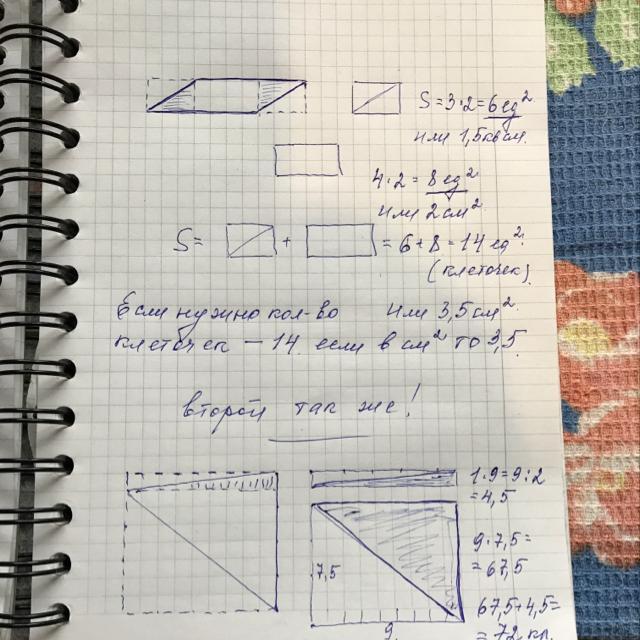 S = 3·2 = 6 ед²
или 1,5 кв см.
4·2 = 8 ед²
или 2 см²
S = + = 6 + 8 = 14 ед²
(клеточек)
или 3,5 см²
Если нужно кол-во
клеточек — 14 если в см² то 3,5
второй так же!
1·9 = 9:2
= 4,5
9·7,5 =
= 67,5
7,5
67,5 + 4,5 =
9
= 72 кл.